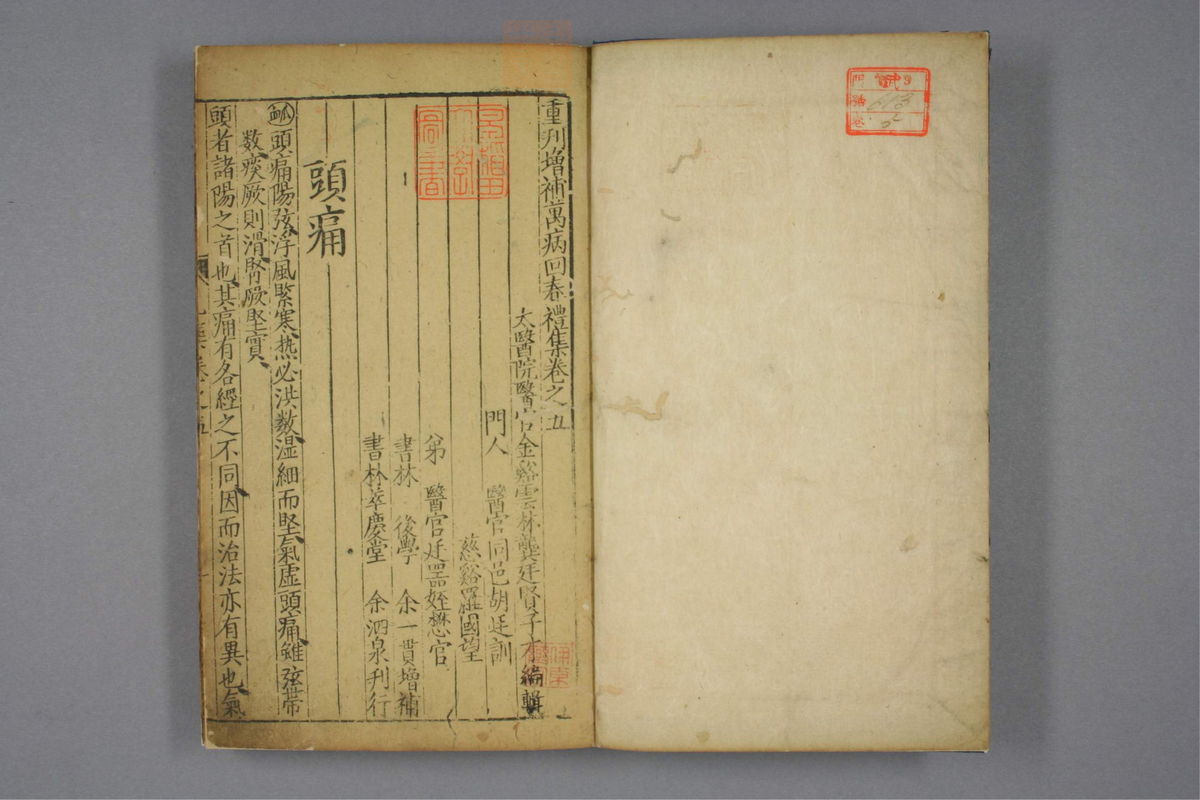 重刋增補萬病回春禮集卷之五
太醫院醫官金谿雲林龔廷賢子才編輯
門人 醫官同邑胡廷訓
慈谿羅國望
弟 醫官廷噐姪懋官
書林 後學 余一貫增補
書林萃慶堂 余泗泉刋行
頭痛
頭痛陽弦浮風緊寒热必洪数湿細而堅氣虚頭痛雖弦带
数痰厥則滑腎厥堅實
頭者諸陽之首也其痛有各經之不同因而治法亦有異也氣
卷之五